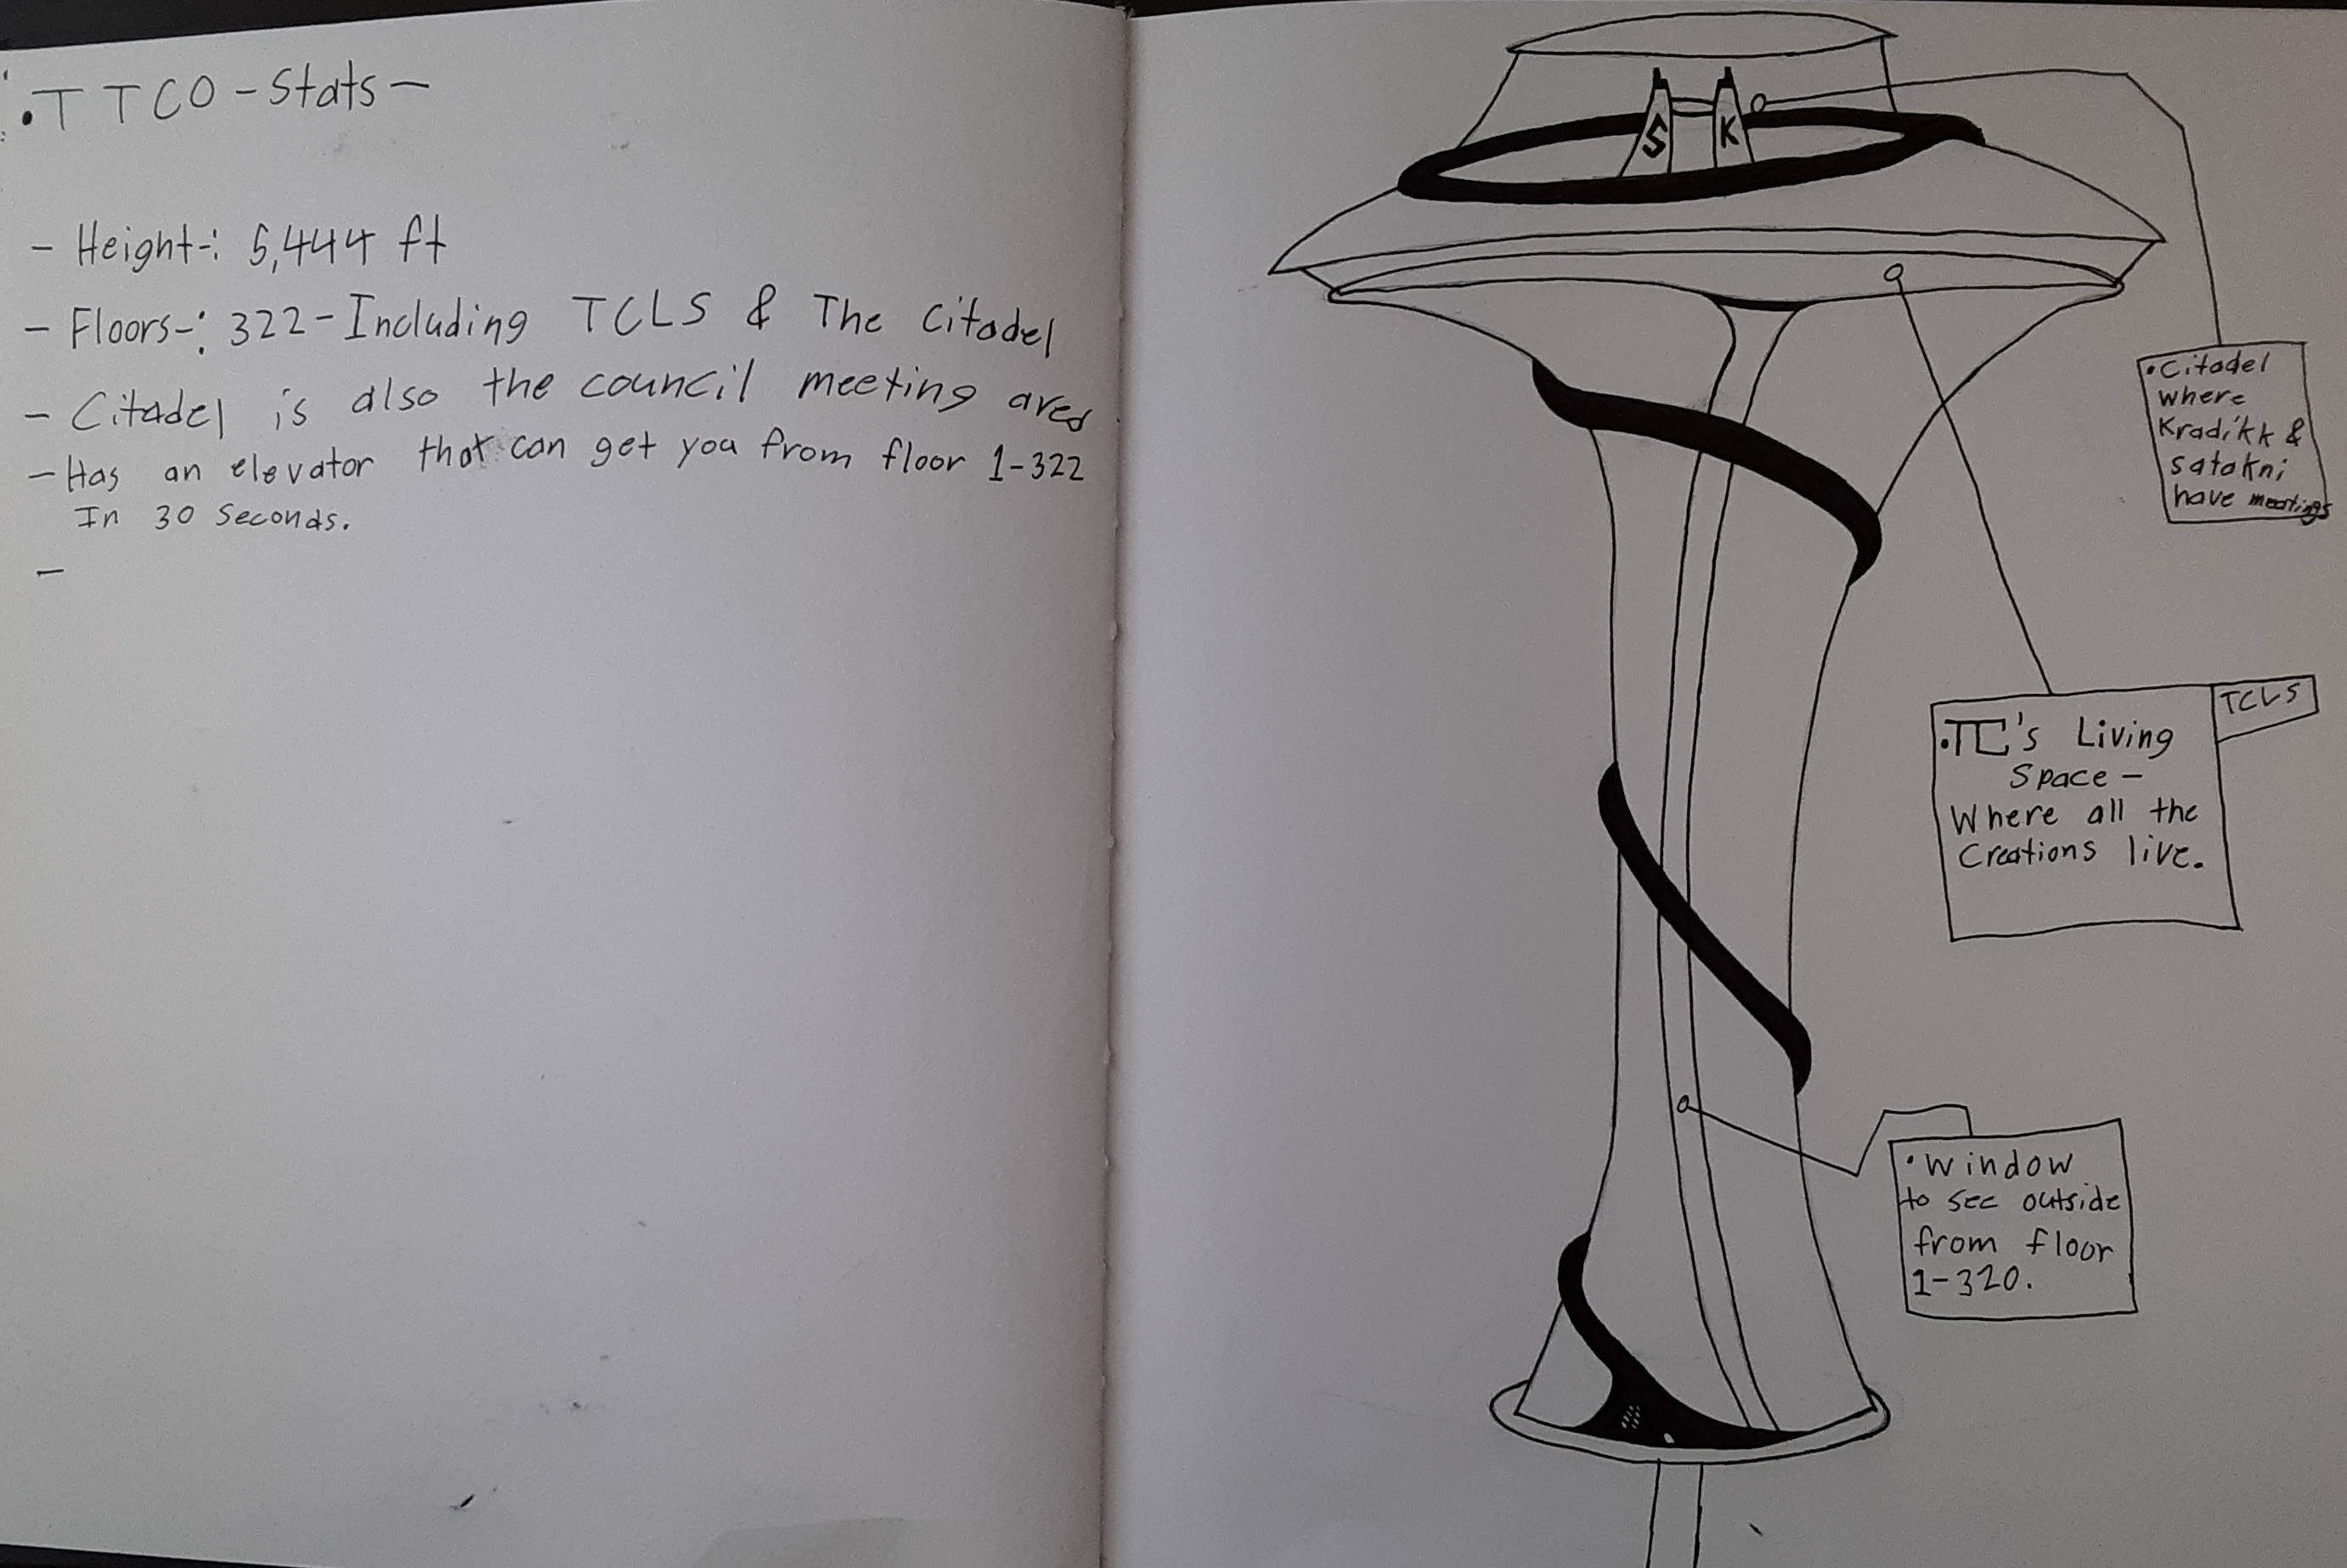 ·TTCO-Stats-
- Height-: 5,444 ft
- Floors-: 322-Including TCLS & The Citadel
- Citadel is also the council meeting area
- Has an elevator that can get you from floor 1-322
In 30 seconds.
-
S K
·Citadel
where
Kradikk &
satakni
have meetings
TCLS
·TC's Living
Space-
Where all the
Creations live.
·Window
to see outside
from floor
1-320.